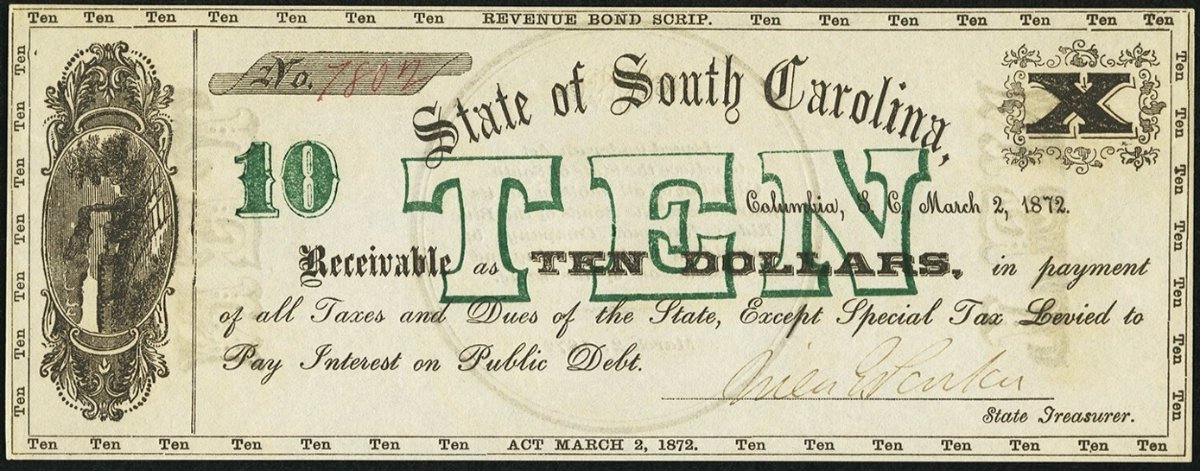 Ten Ten Ten Ten Ten Ten Ten REVENUE BOND SCRIP. Ten Ten Ten Ten Ten Ten Ten
No. 7802
State of South Carolina,
X
10
TEN
Columbia, S. C., March 2, 1872.
Receivable as TEN DOLLARS, in payment
of all Taxes and Dues of the State, Except Special Tax Levied to
Pay Interest on Public Debt.
Niles G. Parker
State Treasurer.
Ten Ten Ten Ten Ten Ten Ten
Ten Ten Ten Ten Ten Ten Ten
Ten Ten Ten Ten Ten Ten Ten ACT MARCH 2, 1872. Ten Ten Ten Ten Ten Ten Ten